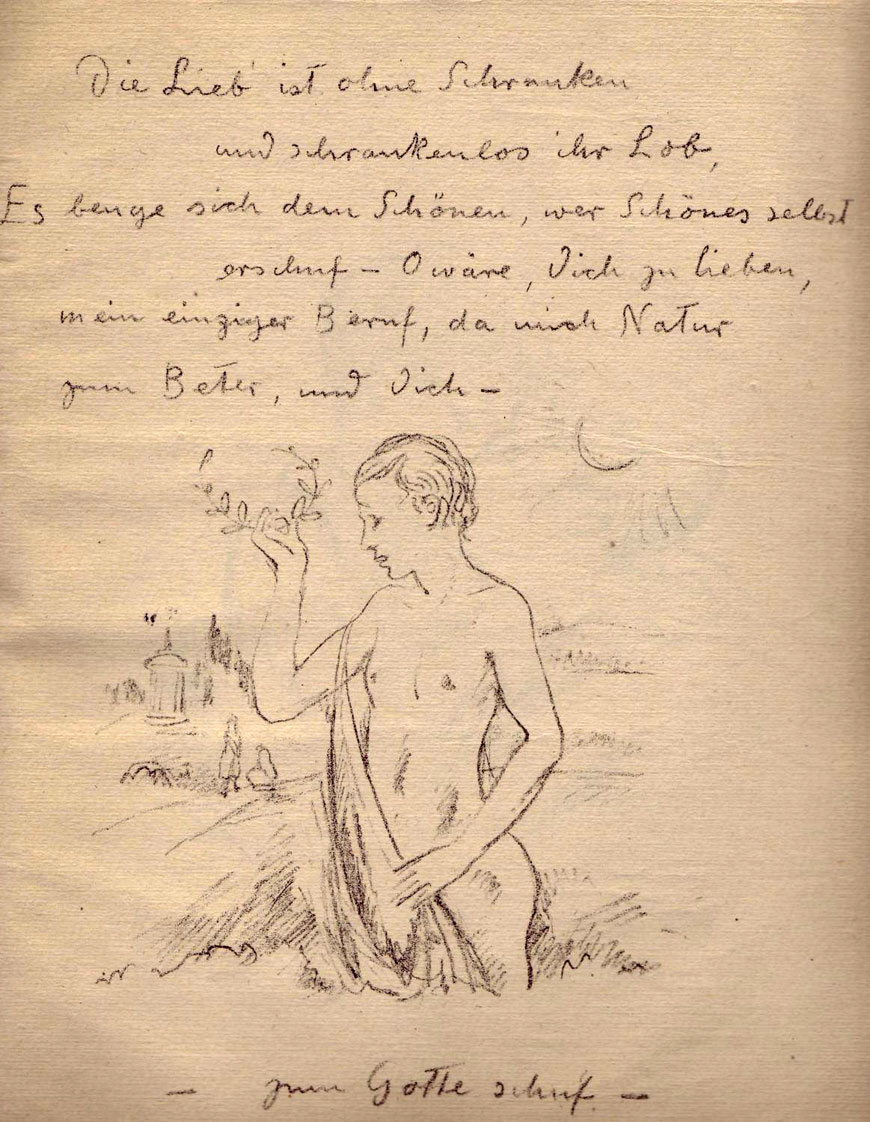 Die Lieb' ist ohne Schranken
und schrankenlos ihr Lob,
Es beuge sich dem Schönen, wer Schönes selbst
erschuf – O wäre, Dich zu lieben,
mein einziger Beruf, da mich Natur
zum Beter, und Dich –
– zum Gotte schuf. –